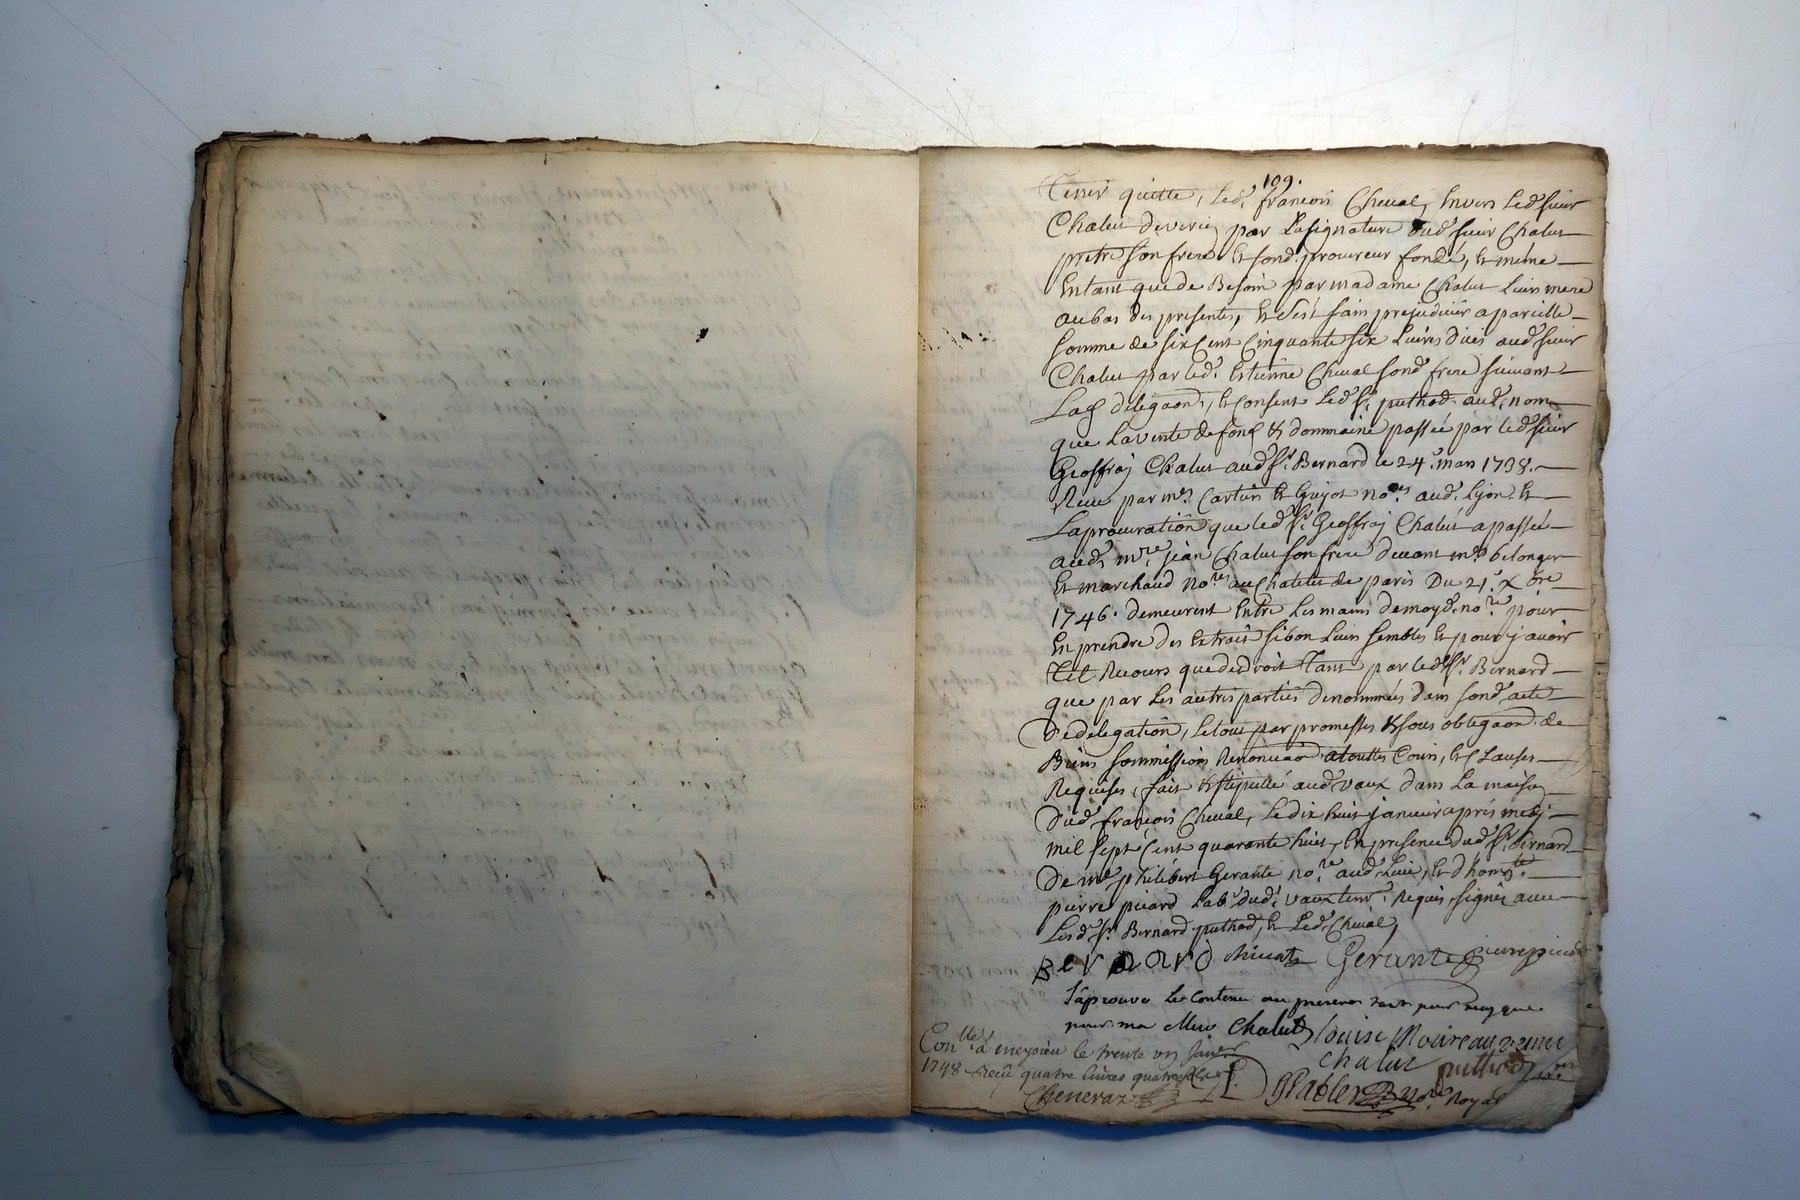 109.
Tenir quitte, led. francois Cheval, Envers led. sieur
Chalut deverié par la signature dud. sieur Chalut
pretre son frere et sond. procureur fondé, et même
Entant que de Besoin par madame Chalut Leur mere
au bas des presentes, et c'est sans prejudicier a pareille
somme de six Cent Cinquante six Livres dües aud. sieur
Chalut par led. Estienne Cheval sond. frere suivant
Lad. délégaon., et Consent led. sr. puthod aud. nom
que La vente de fond et dommaine passée par led. sieur
Geoffroj Chalut aud. sr. Bernard le 24e. mars 1738.
Reçue par mes. et Guyot nores. aud. Lyon et
La procuration que led. sr. Geoffroj Chalut a passée
aud. mre. jean Chalut son frere devant mes belanger
et marchand nores au Chatelet de paris Du 21e. Xbre
1746. demeurent Entre Les mains de moyd. nore. pour
En prendre des Extraits si bon Leurs semble et pour y avoir
Tel Recours que de droit Tant par led. sr. Bernard
que par Les autres parties dénommées dans sond. acte
De delegation, le tout par promesses et sous obligaon. de
Biens sommissions Renonciaon a touttes Cours, et Clauses
Requises, fait et stipullé aud. vaux dans La maison
Dud. françois Cheval, Le dix huit janvier après midj
mil sept Cent quarante huit, En presence dud. sr. Bernard
De me philibert Gerante nore. aud. Lieu, et d'honte.
pierre picard Labr. dud. vaux tems. Requis, signés avec
Lesd. srs. Bernard puthod, et led. Cheval,
Bernard Gerante pierre picard
J'aprouve le contenu au presens tant pour moy que
pour ma Mere Chalut Louise
Chalut puthod
Conllé. a meyzieu le trente un Janer
1748 Reçu quatre livres quatre
Cheneraz nore Royal